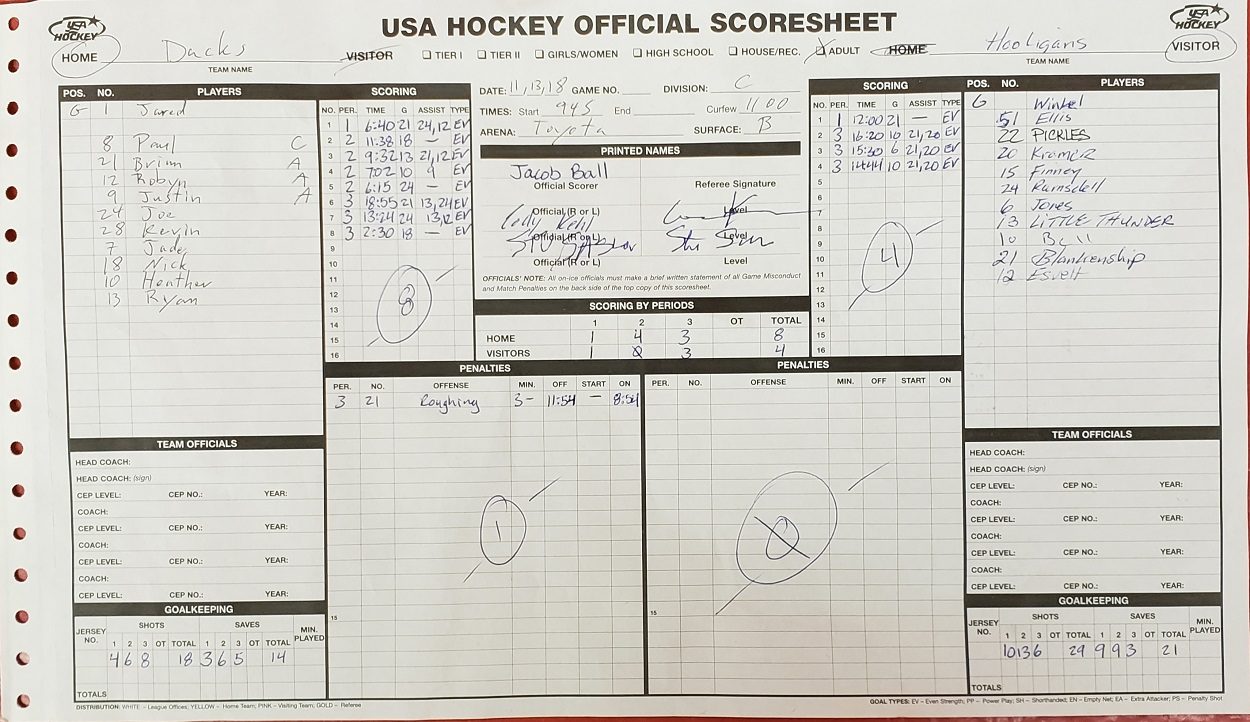 USA HOCKEY OFFICIAL SCORESHEET
USA HOCKEY
USA HOCKEY
HOME Ducks VISITOR ☐ TIER I ☐ TIER II ☐ GIRLS/WOMEN ☐ HIGH SCHOOL ☐ HOUSE/REC. ☒ ADULT HOME Hooligans VISITOR
TEAM NAME TEAM NAME
POS. NO. PLAYERS
G 1 Jared
8 Paul C
21 Brian A
12 Robyn A
9 Justin A
24 Joe
28 Kevin
7 Jade
18 Nick
10 Heather
13 Ryan
SCORING
NO. PER. TIME G ASSIST TYPE
1 1 6:40 21 24,12 EV
2 2 11:38 18 — EV
3 2 9:32 13 21,12 EV
4 2 7:02 10 9 EV
5 2 6:15 24 — EV
6 3 18:55 21 13,24 EV
7 3 13:24 24 13,12 EV
8 3 2:30 18 — EV
9
10
11
12
13
14
15
16
8
DATE: 11,13,18 GAME NO. DIVISION: C
TIMES: Start 945 End Curfew 11:00
ARENA: Toyota SURFACE: B
PRINTED NAMES
Jacob Ball
Official Scorer Referee Signature
Official (R or L) Level
Official (R or L) Level
Official (R or L) Level
OFFICIALS' NOTE: All on-ice officials must make a brief written statement of all Game Misconduct
and Match Penalties on the back side of the top copy of this scoresheet.
SCORING BY PERIODS
1 2 3 OT TOTAL
HOME 1 4 3 8
VISITORS 1 0 3 4
SCORING
NO. PER. TIME G ASSIST TYPE
1 1 12:00 21 — EV
2 3 16:20 10 21,20 EV
3 3 15:30 6 21,20 EV
4 3 14:44 10 21,20 EV
5
6
7
8
9
10
11
12
13
14
15
16
4
POS. NO. PLAYERS
G Winkel
51 Ellis
22 PICKLES
20 Kramer
15 Finney
24 Ramsdell
6 Jones
13 LITTLE THUNDER
10 Bell
21 Blankenship
12 Esvelt
PENALTIES
PER. NO. OFFENSE MIN. OFF START ON
3 21 Roughing 3- 11:54 — 8:54
1
15
PENALTIES
PER. NO. OFFENSE MIN. OFF START ON
0
15
TEAM OFFICIALS
HEAD COACH:
HEAD COACH: (sign)
CEP LEVEL: CEP NO.: YEAR:
COACH:
CEP LEVEL: CEP NO.: YEAR:
COACH:
CEP LEVEL: CEP NO.: YEAR:
COACH:
CEP LEVEL: CEP NO.: YEAR:
GOALKEEPING
JERSEY NO. SHOTS SAVES MIN. PLAYED
1 2 3 OT TOTAL 1 2 3 OT TOTAL
4 6 8 18 3 6 5 14
TOTALS
TEAM OFFICIALS
HEAD COACH:
HEAD COACH: (sign)
CEP LEVEL: CEP NO.: YEAR:
COACH:
CEP LEVEL: CEP NO.: YEAR:
COACH:
CEP LEVEL: CEP NO.: YEAR:
COACH:
CEP LEVEL: CEP NO.: YEAR:
GOALKEEPING
JERSEY NO. SHOTS SAVES MIN. PLAYED
1 2 3 OT TOTAL 1 2 3 OT TOTAL
10 13 6 29 9 9 3 21
TOTALS
DISTRIBUTION: WHITE – League Offices; YELLOW – Home Team; PINK – Visiting Team; GOLD – Referee
GOAL TYPES: EV – Even Strength; PP – Power Play; SH – Shorthanded; EN – Empty Net; EA – Extra Attacker; PS – Penalty Shot